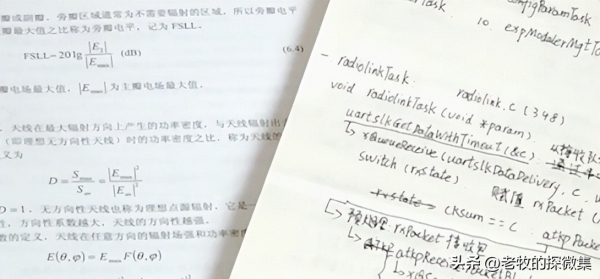 瓣或副瓣，旁瓣区域通常为不需要辐射的区域，所以旁瓣电平
瓣最大值之比称为旁瓣电平，记为 FSLL，
FSLL=20lg |E₂| / |Emax| (dB)
(6.4)
瓣电场最大值，|Emax| 为主瓣电场最大值。
，天线在最大辐射方向上产生的功率密度，与天线辐射出
（即理想无方向性天线）时的功率密度之比，称为天线的
义为
D = Smax / Sav = |Emax|² / |Eav|²
D=1，无方向性天线也称为理想点源辐射，它是一
性，方向性系数越大，天线的方向性越强。
数的定义，天线在任意方向的辐射场强和功率密度
E(θ,φ) = Emax F(θ,φ)
figParamTask
Task
10. expModulerMgtT
- radiolinkTask.
radiolink.c (348)
void radiolinkTask (void *param).
uartslkGetDataWithTimeout(&c).
↳ xQueueReceive(uartslkDataDelivery, c,
switch (rxState).
赋值 rxPacket
rxstate
cksum == c
atkpPacket
rxPacket
atkpReceive
头条 @老牧的探微集